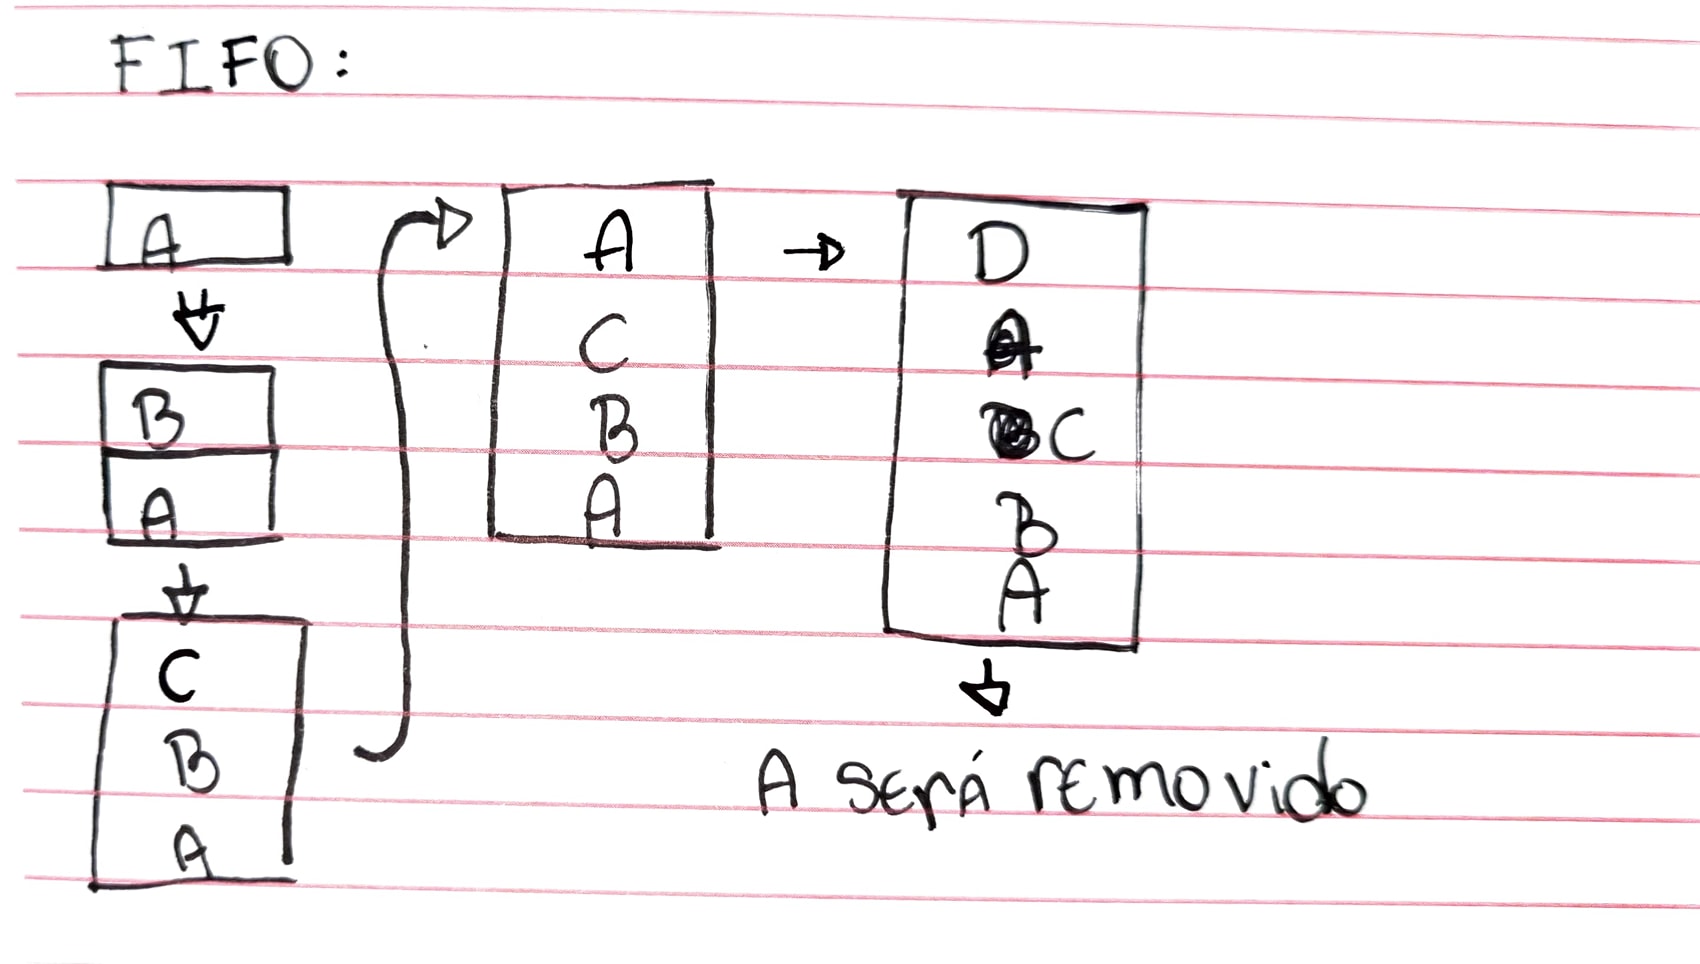 FIFO:
A
B
A
C
B
A
A
C
B
A
D
A
C
B
A
A será removido